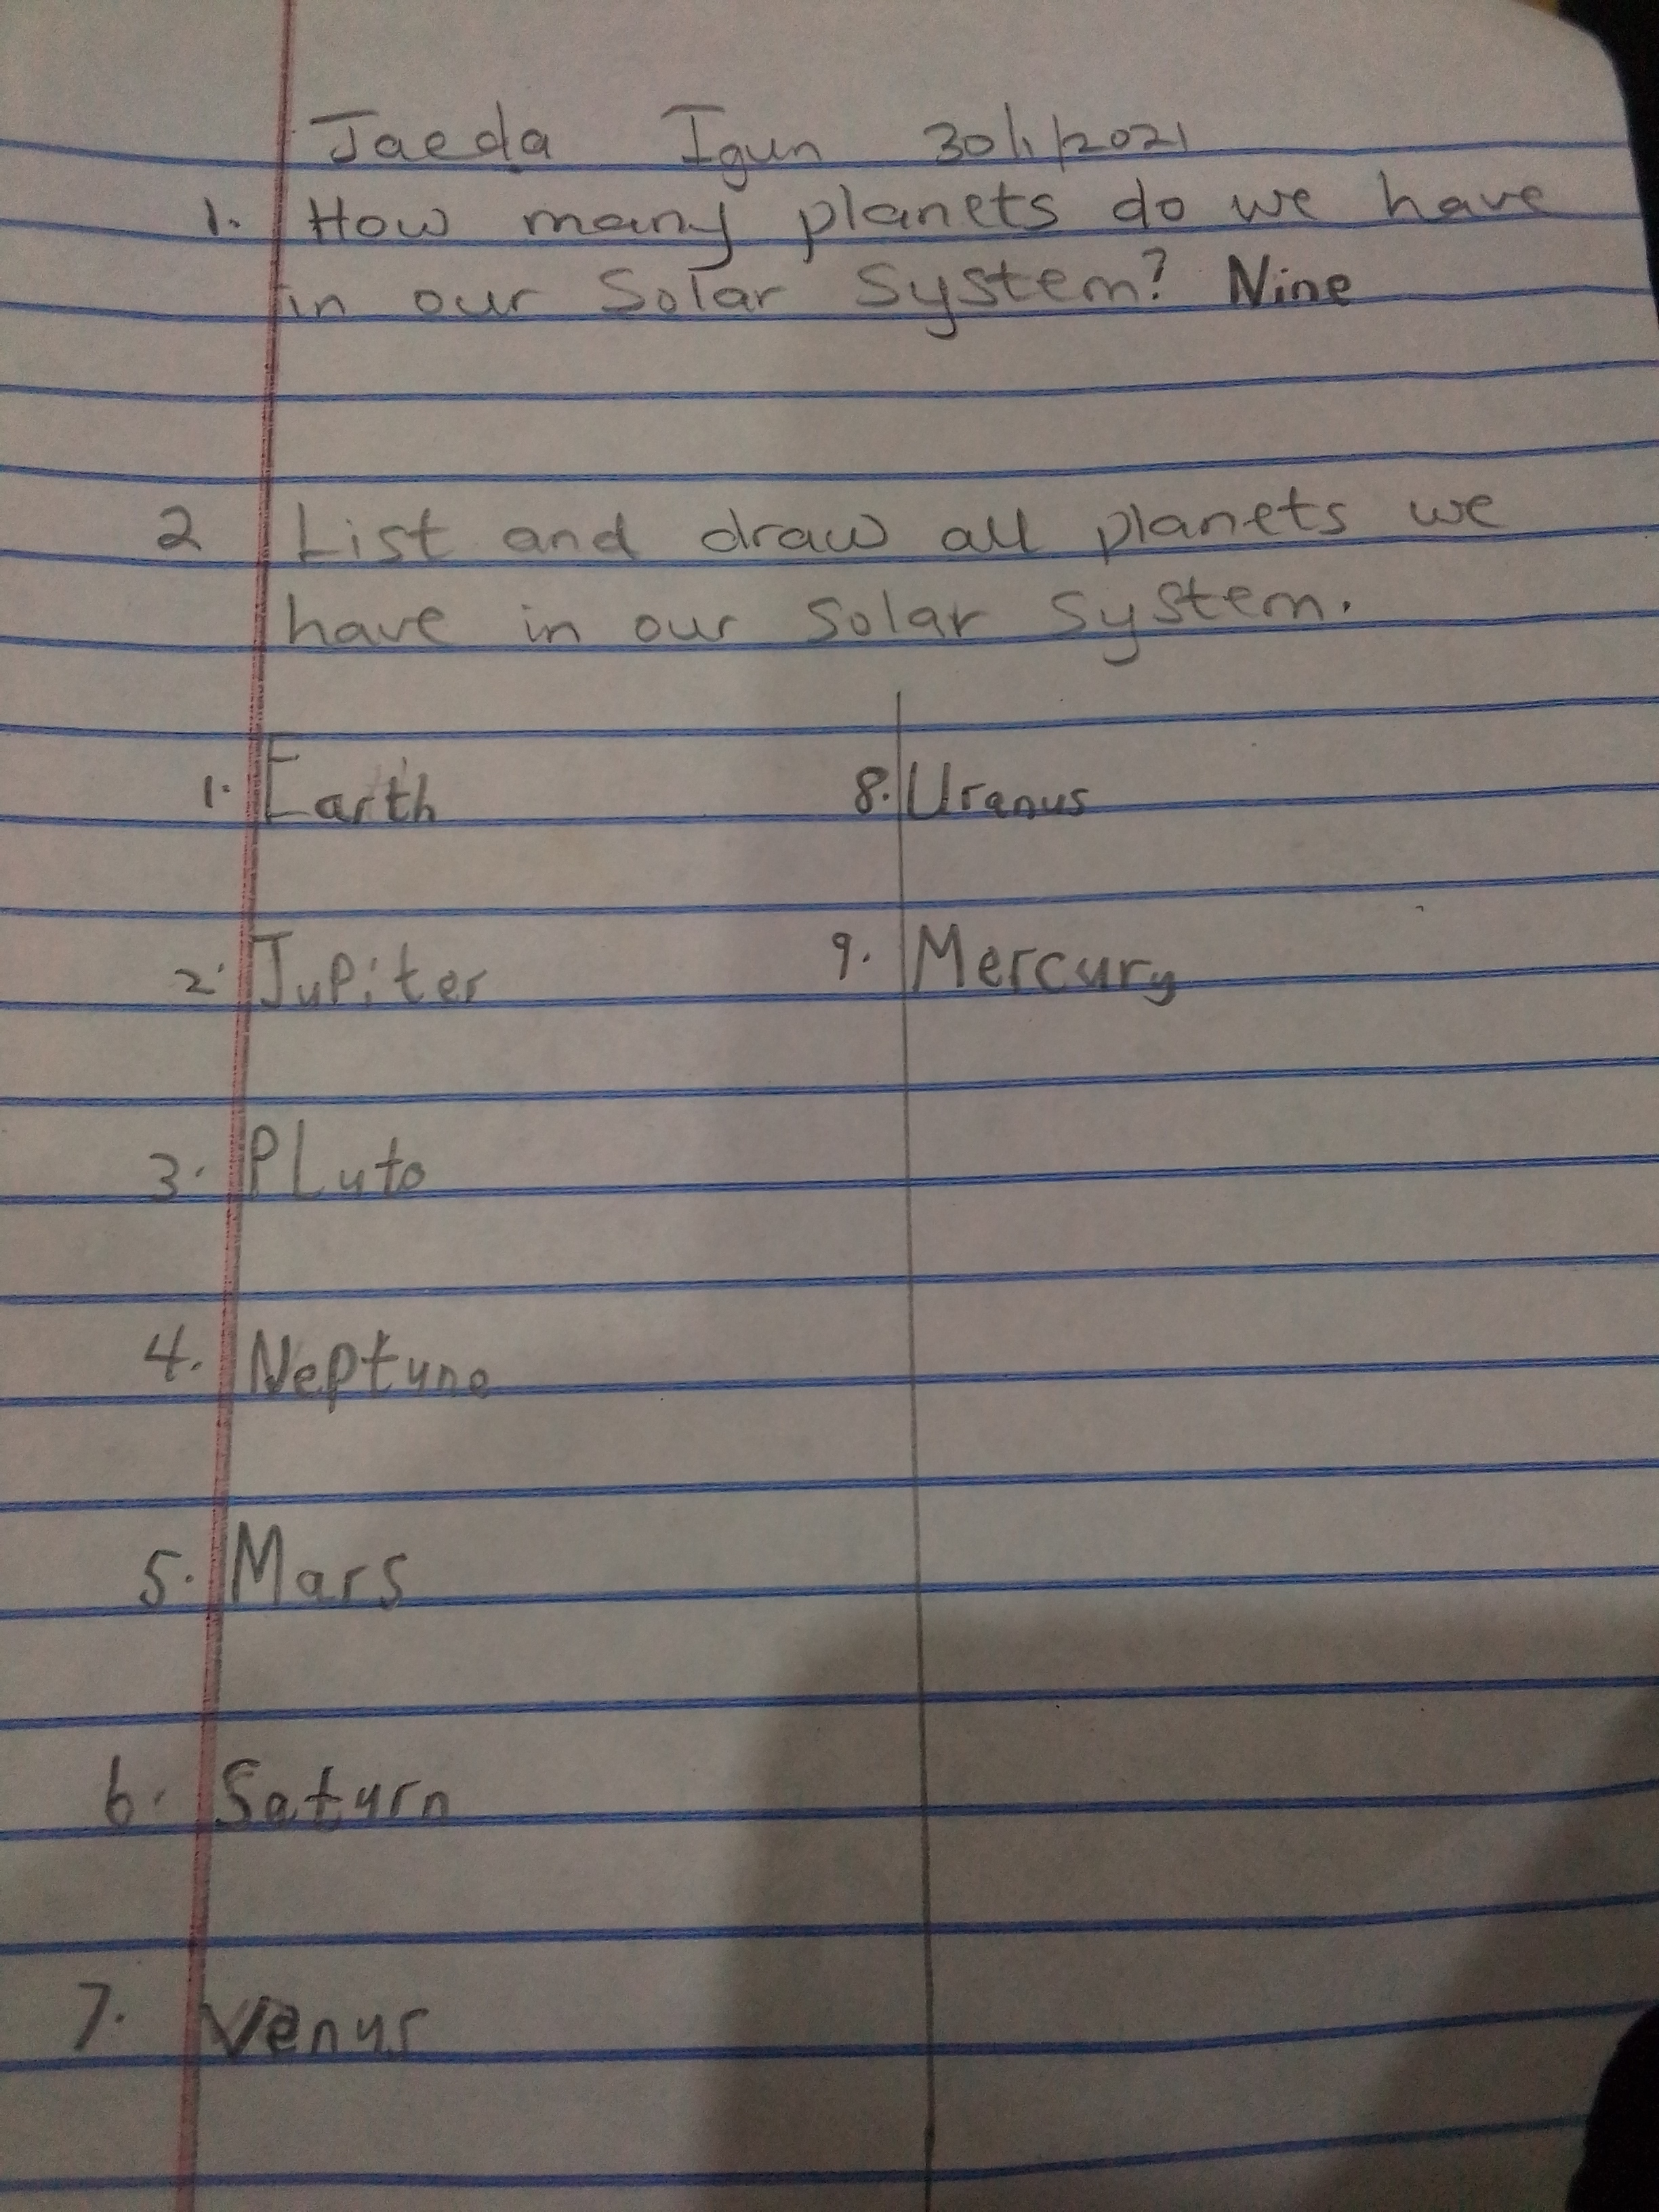 Jaeda Igun 30/1/2021
1. How many planets do we have
in our Solar System? Nine
2 List and draw all planets we
have in our Solar System.
1. Earth
2. Jupiter
3. PLuto
4. Neptune
5. Mars
6. Saturn
7. Venus
8. Uranus
9. Mercury